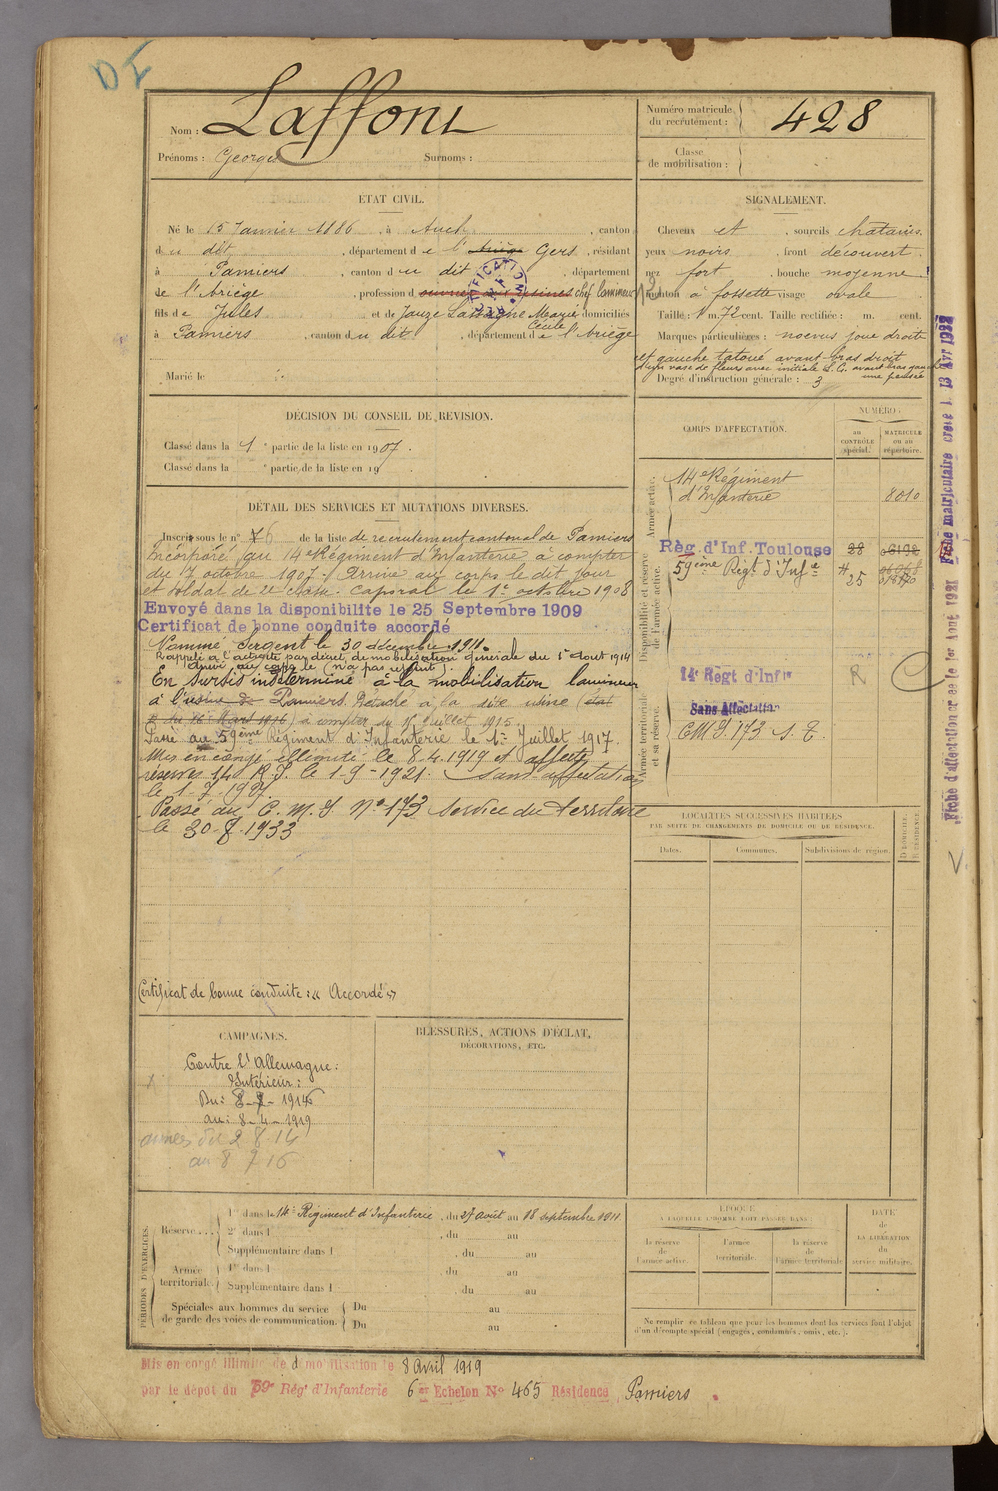 DI
Nom : Laffont
Prénoms : Georges Surnoms :
Numéro matricule du recrutement : 428
Classe de mobilisation :
ÉTAT CIVIL.
Né le 15 Janvier 1886, à Auch, canton
du dit, département de l' Ariège Gers, résidant
à Pamiers, canton du dit, département
de l'Ariège, profession d ouvrier aux usines chef lamineur
fils de Jules et de Jauze Marie Cécile domiciliés
à Pamiers, canton du dit, département de l'Ariège
Marié le
SIGNALEMENT.
Cheveux et sourcils chatains.
yeux noirs, front découvert
nez fort, bouche moyenne
menton à fossette visage ovale
Taille : 1 m. 72 cent. Taille rectifiée : m. cent.
Marques particulières : noevus joue droite
et gauche tatoué avant bras droit
d'un vase de fleurs avec initiale L.G. avant bras gauche
une pensée
Degré d'instruction générale : 3
DÉCISION DU CONSEIL DE REVISION.
Classé dans la 1e partie de la liste en 1907.
Classé dans la e partie de la liste en 19
DÉTAIL DES SERVICES ET MUTATIONS DIVERSES.
Inscrit sous le n° 76 de la liste de recrutement cantonal de Pamiers
Incorporé au 14e Régiment d'Infanterie à compter
du 7 octobre 1907. Arrivé au corps le dit jour
et soldat de 2e classe. Caporal le 1er octobre 1908
Envoyé dans la disponibilite le 25 Septembre 1909
Certificat de bonne conduite accordé
Nommé Sergent le 30 décembre 1911.
Rappelé à l'activité par décret de mobilisation générale du 1er Aout 1914
Arrivé au corps le (n'a pas rejoint).
En Sursis indéterminé à la mobilisation lamineur
à l'usine de Pamiers. Détaché à la dite usine (état
du 26 Mars 1916) à compter du 1er Juillet 1915.
Passé au 59ème Régiment d'Infanterie le 1er Juillet 1917.
Mis en congé illimité le 8.4.1919 et affecté
réserves 14e R.I. le 1-9-1921. Sans affectation
le 1-7-1927.
Passé au C.M.I N° 173 Service du territoire
le 30-7-1933
Certificat de bonne conduite : « Accordé »
CORPS D'AFFECTATION.
NUMÉRO :
au CONTRÔLE spécial.
MATRICULE ou au répertoire.
Armée active.
14e Régiment
d'Infanterie 8010
Disponibilité et réserve de l'armée active.
Règ. d'Inf. Toulouse 28
59ème Régt d'Infie
25
Armée territoriale et sa réserve.
14e Regt d'Infie R
Sans Affectation
CMI 173 S.T.
Fiche d'affectation créée le 1er Aout 1921 Fiche matriculaire créée le 13 Avr 1932
LOCALITÉS SUCCESSIVES HABITÉES
PAR SUITE DE CHANGEMENTS DE DOMICILE OU DE RÉSIDENCE.
Dates. Communes. Subdivisions de région. D. DOMICILE. R. RÉSIDENCE.
CAMPAGNES.
Contre l'Allemagne :
Intérieur :
Du : 8-7-1916
au : 8-4-1919
armées du 2 8 14
au 8 7 16
BLESSURES, ACTIONS D'ÉCLAT,
DÉCORATIONS, ETC.
PÉRIODES D'EXERCICES.
Réserve... 1re dans le 14e Régiment d'Infanterie, du 27 août au 18 septembre 1911
2e dans l , du au
Supplémentaire dans l , du au
Armée territoriale. 1re dans l , du au
Supplémentaire dans l , du au
Spéciales aux hommes du service de garde des voies de communication. Du au
Du au
ÉPOQUE
À LAQUELLE L'HOMME DOIT PASSER DANS :
la réserve de l'armée active.
l'armée territoriale.
la réserve de l'armée territoriale
DATE DE LA LIBÉRATION du service militaire.
Ne remplir ce tableau que pour les hommes dont les services font l'objet
d'un décompte spécial (engagés, condamnés, omis, etc.).
Mis en congé illimité de démobilisation le 8 Avril 1919
par le dépôt du 59e Rég' d'Infanterie 6 er Echelon N° 465 Résidence Pamiers